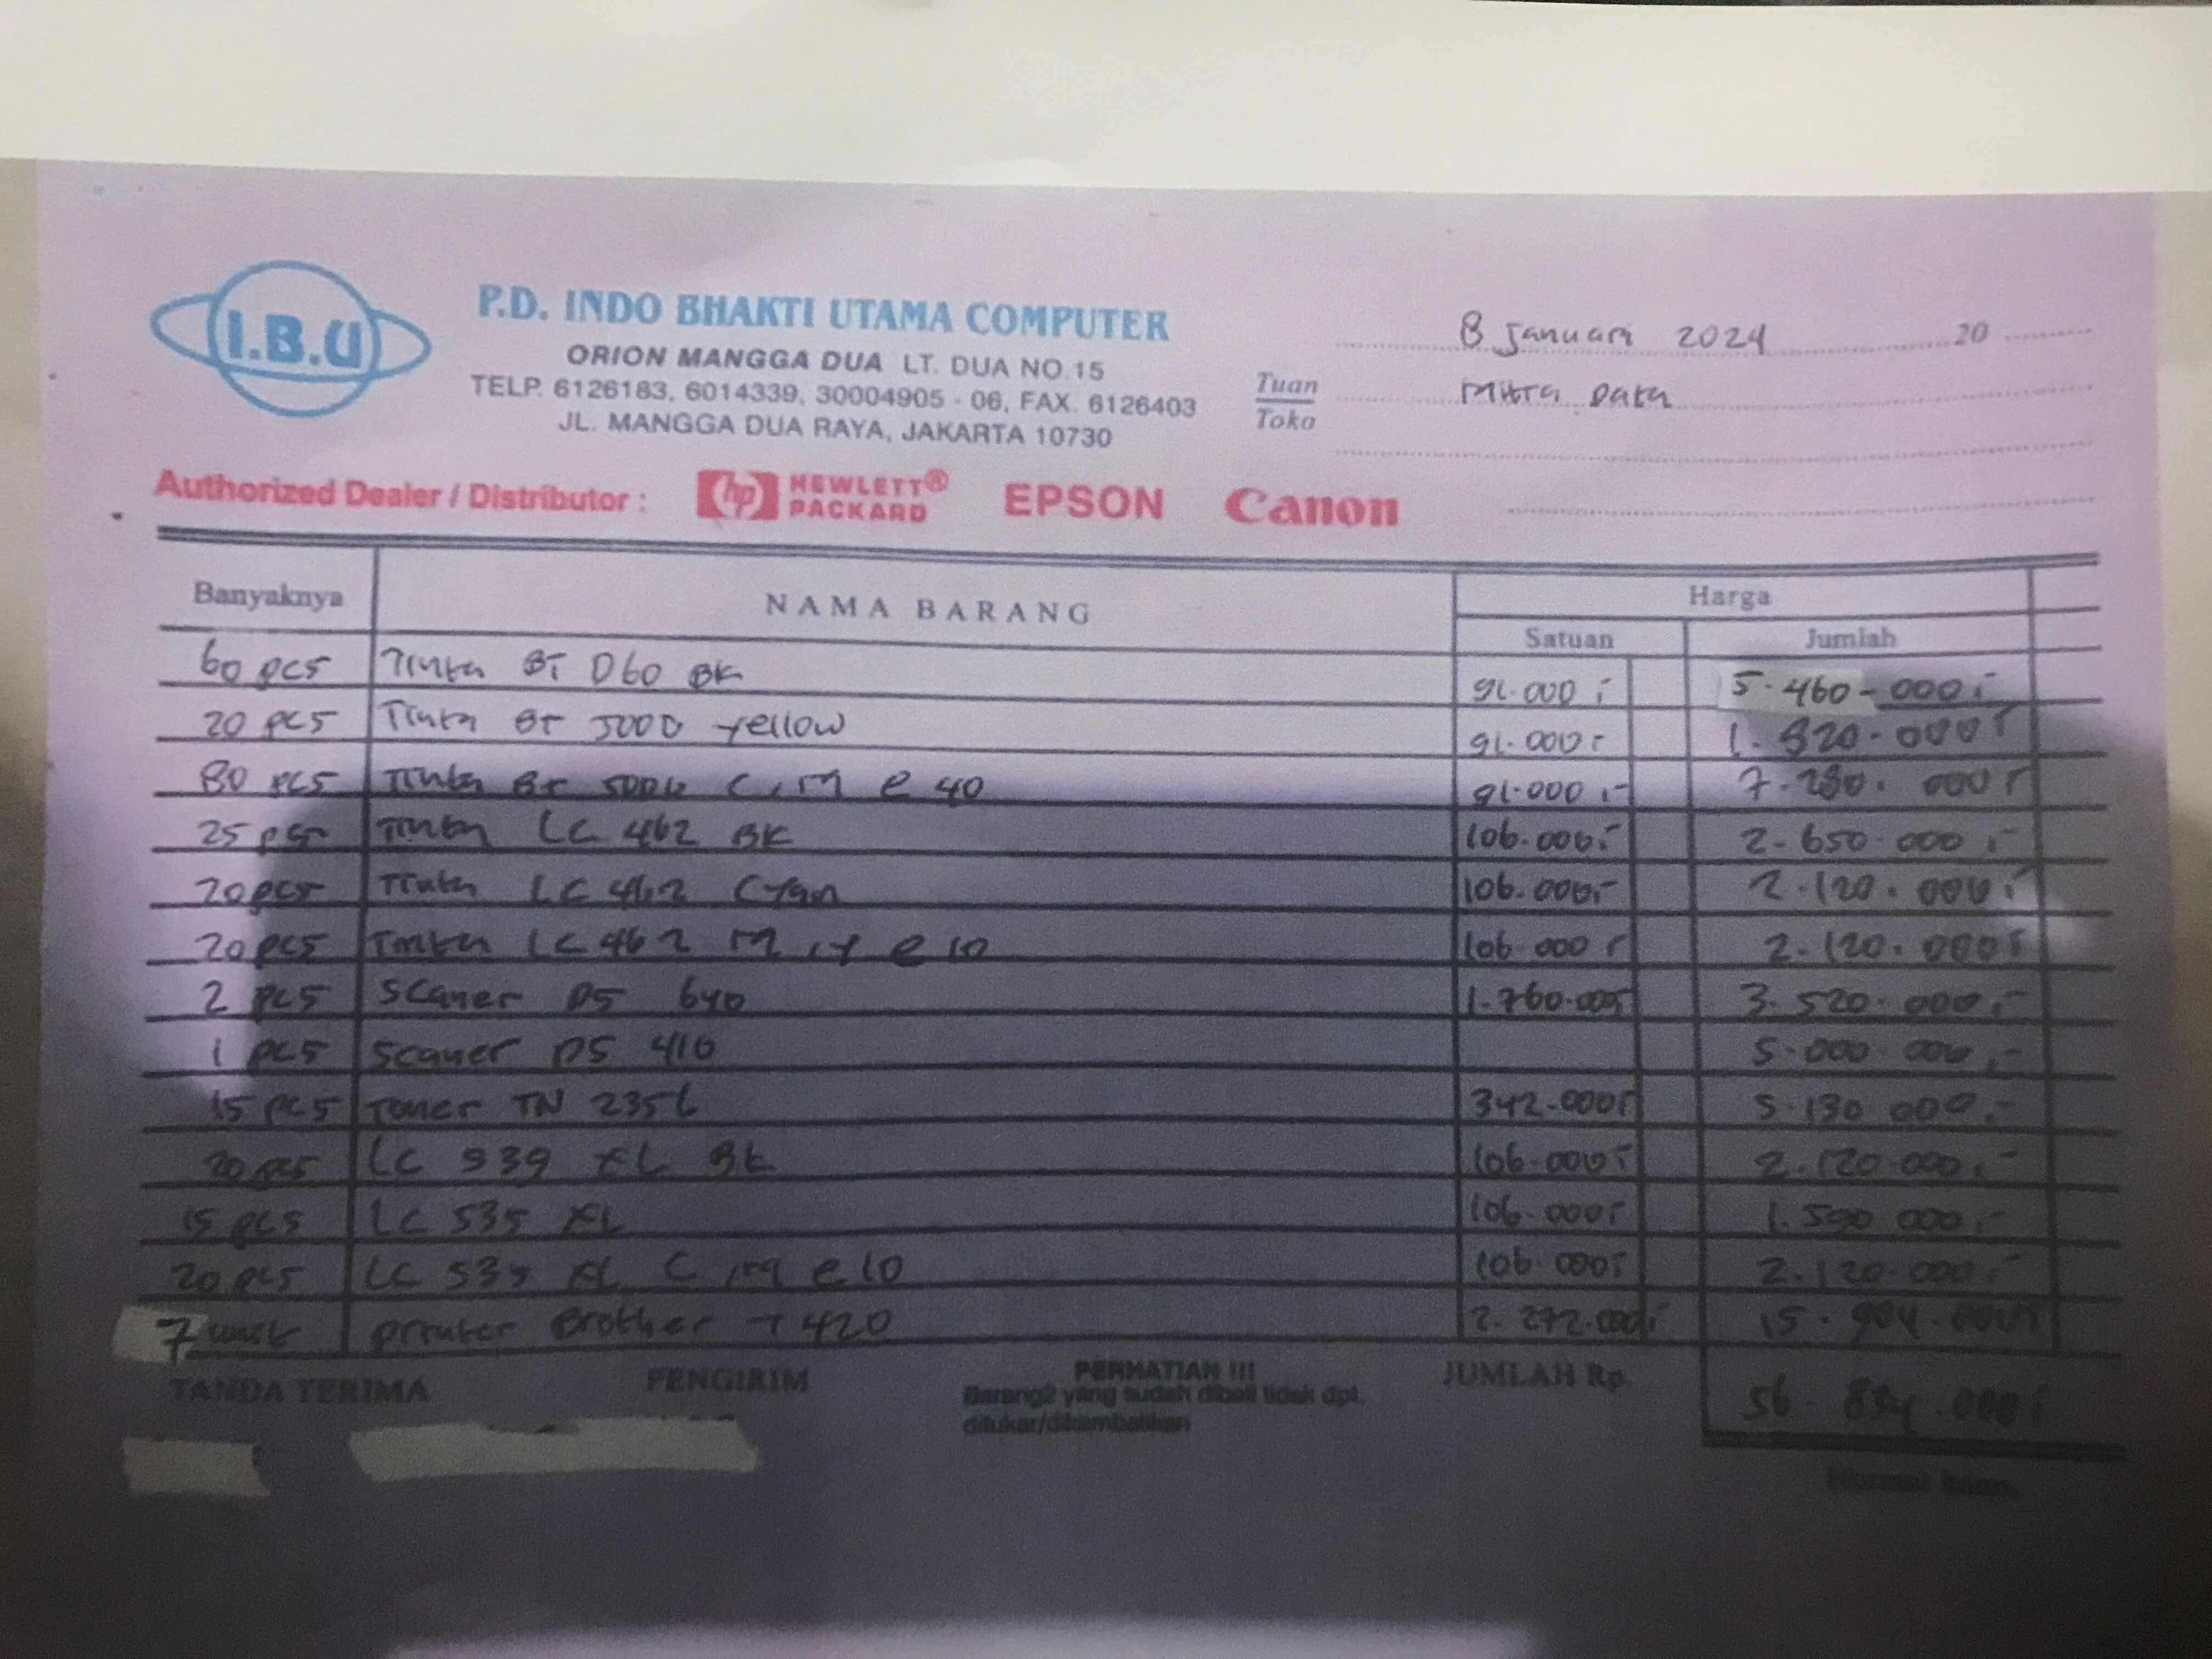 I.B.U
P.D. INDO BHAKTI UTAMA COMPUTER
ORION MANGGA DUA LT. DUA NO.15
TELP. 6126183, 6014339, 30004905 - 06, FAX. 6126403
JL. MANGGA DUA RAYA, JAKARTA 10730
8 Januari 2024 20
Tuan Mitra Data
Toko
Authorized Dealer / Distributor : hp HEWLETT® PACKARD EPSON Canon
Banyaknya NAMA BARANG Harga
Satuan Jumlah
60 pcs Tinta BT D60 BK 91.000,- 5.460.000,-
20 pcs Tinta BT 5000 Yellow 91.000,- 1.820.000,-
80 pcs Tinta BT C, M @ 40 91.000,- 7.280.000,-
25 pcs Tinta LC 462 BK 106.000,- 2.650.000,-
20 pcs Tinta LC 462 Cyan 106.000,- 2.120.000,-
20 pcs Tinta LC 462 M, Y @ 10 106.000,- 2.120.000,-
2 pcs Scaner DS 640 1.760.000,- 3.520.000,-
1 pcs Scaner DS 410 5.000.000,-
15 pcs Toner TN 2356 342.000,- 5.130.000,-
20 pcs LC 539 XL BK 106.000,- 2.120.000,-
15 pcs LC 535 XL 106.000,- 1.590.000,-
20 pcs LC 535 XL C, M @ 10 106.000,- 2.120.000,-
7 unit Printer Brother T 420 2.272.000,- 15.904.000,-
TANDA TERIMA PENGIRIM PERHATIAN !!! JUMLAH Rp. 56.834.000,-
Barang2 yang sudah dibeli tidak dpt.
ditukar/dikembalikan
Hormat kami,